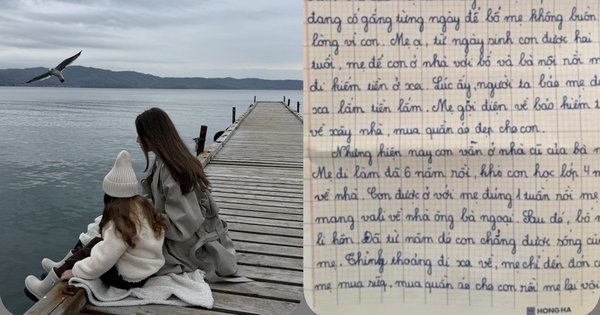 đang cố gắng từng ngày để bố mẹ không buồn
lòng vì con. Mẹ ạ, từ ngày sinh con được hai
tuổi, mẹ để con ở nhà với bố và bà nội rồi m
đi kiếm tiền ở xa. Lúc ấy người ta bảo mẹ đi
xa lắm tiền lắm. Mẹ gọi điện về bảo kiếm t
về xây nhà, mua quần áo đẹp cho con.
Nhưng hiện nay con vẫn ở nhà cũ của bà n
Mẹ đi làm đã 6 năm rồi, khi con học lớp 4 m
về nhà. Con được ở với mẹ đúng 1 tuần rồi mẹ
mang vali về nhà ông bà ngoại. Sau đó, bố m
li hôn. Đã từ năm đó con chẳng được sống cù
mẹ. Thỉnh thoảng đi xa về, mẹ chỉ đến đón c
mẹ mua quà, mua quần áo cho con rồi mẹ lại vội
HONG HA